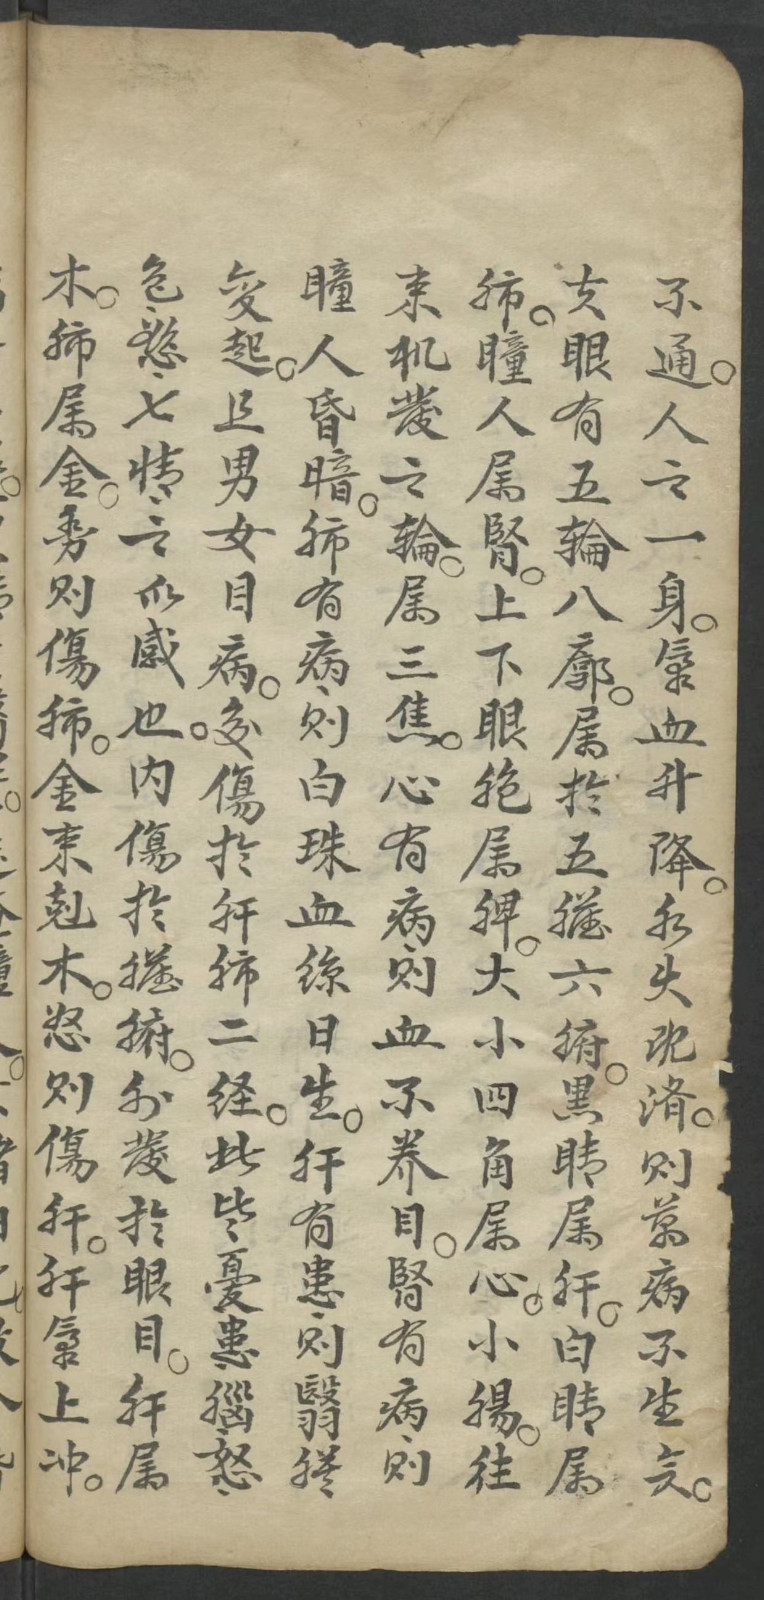 不通。人之一身。氣血升降。水火既济。则萬病不生矣。
夫眼有五輪八廓。属於五臟六腑。黑睛属肝。白睛属
肺。瞳人属腎。上下眼胞属脾。大小四角属心。小腸。往
来机发之輪。属三焦。心有病则血不养目。腎有病则
瞳人昏暗。肺有病则白珠血缐日生。肝有患则翳
变起。且男女目病。多傷於肝肺二経。此皆憂患惱怒
色慾七情之所感也。内傷於臟腑。外发於眼目。肝属
木。肺属金。劳则傷肺。金来尅木。怒则傷肝。肝氣上冲。